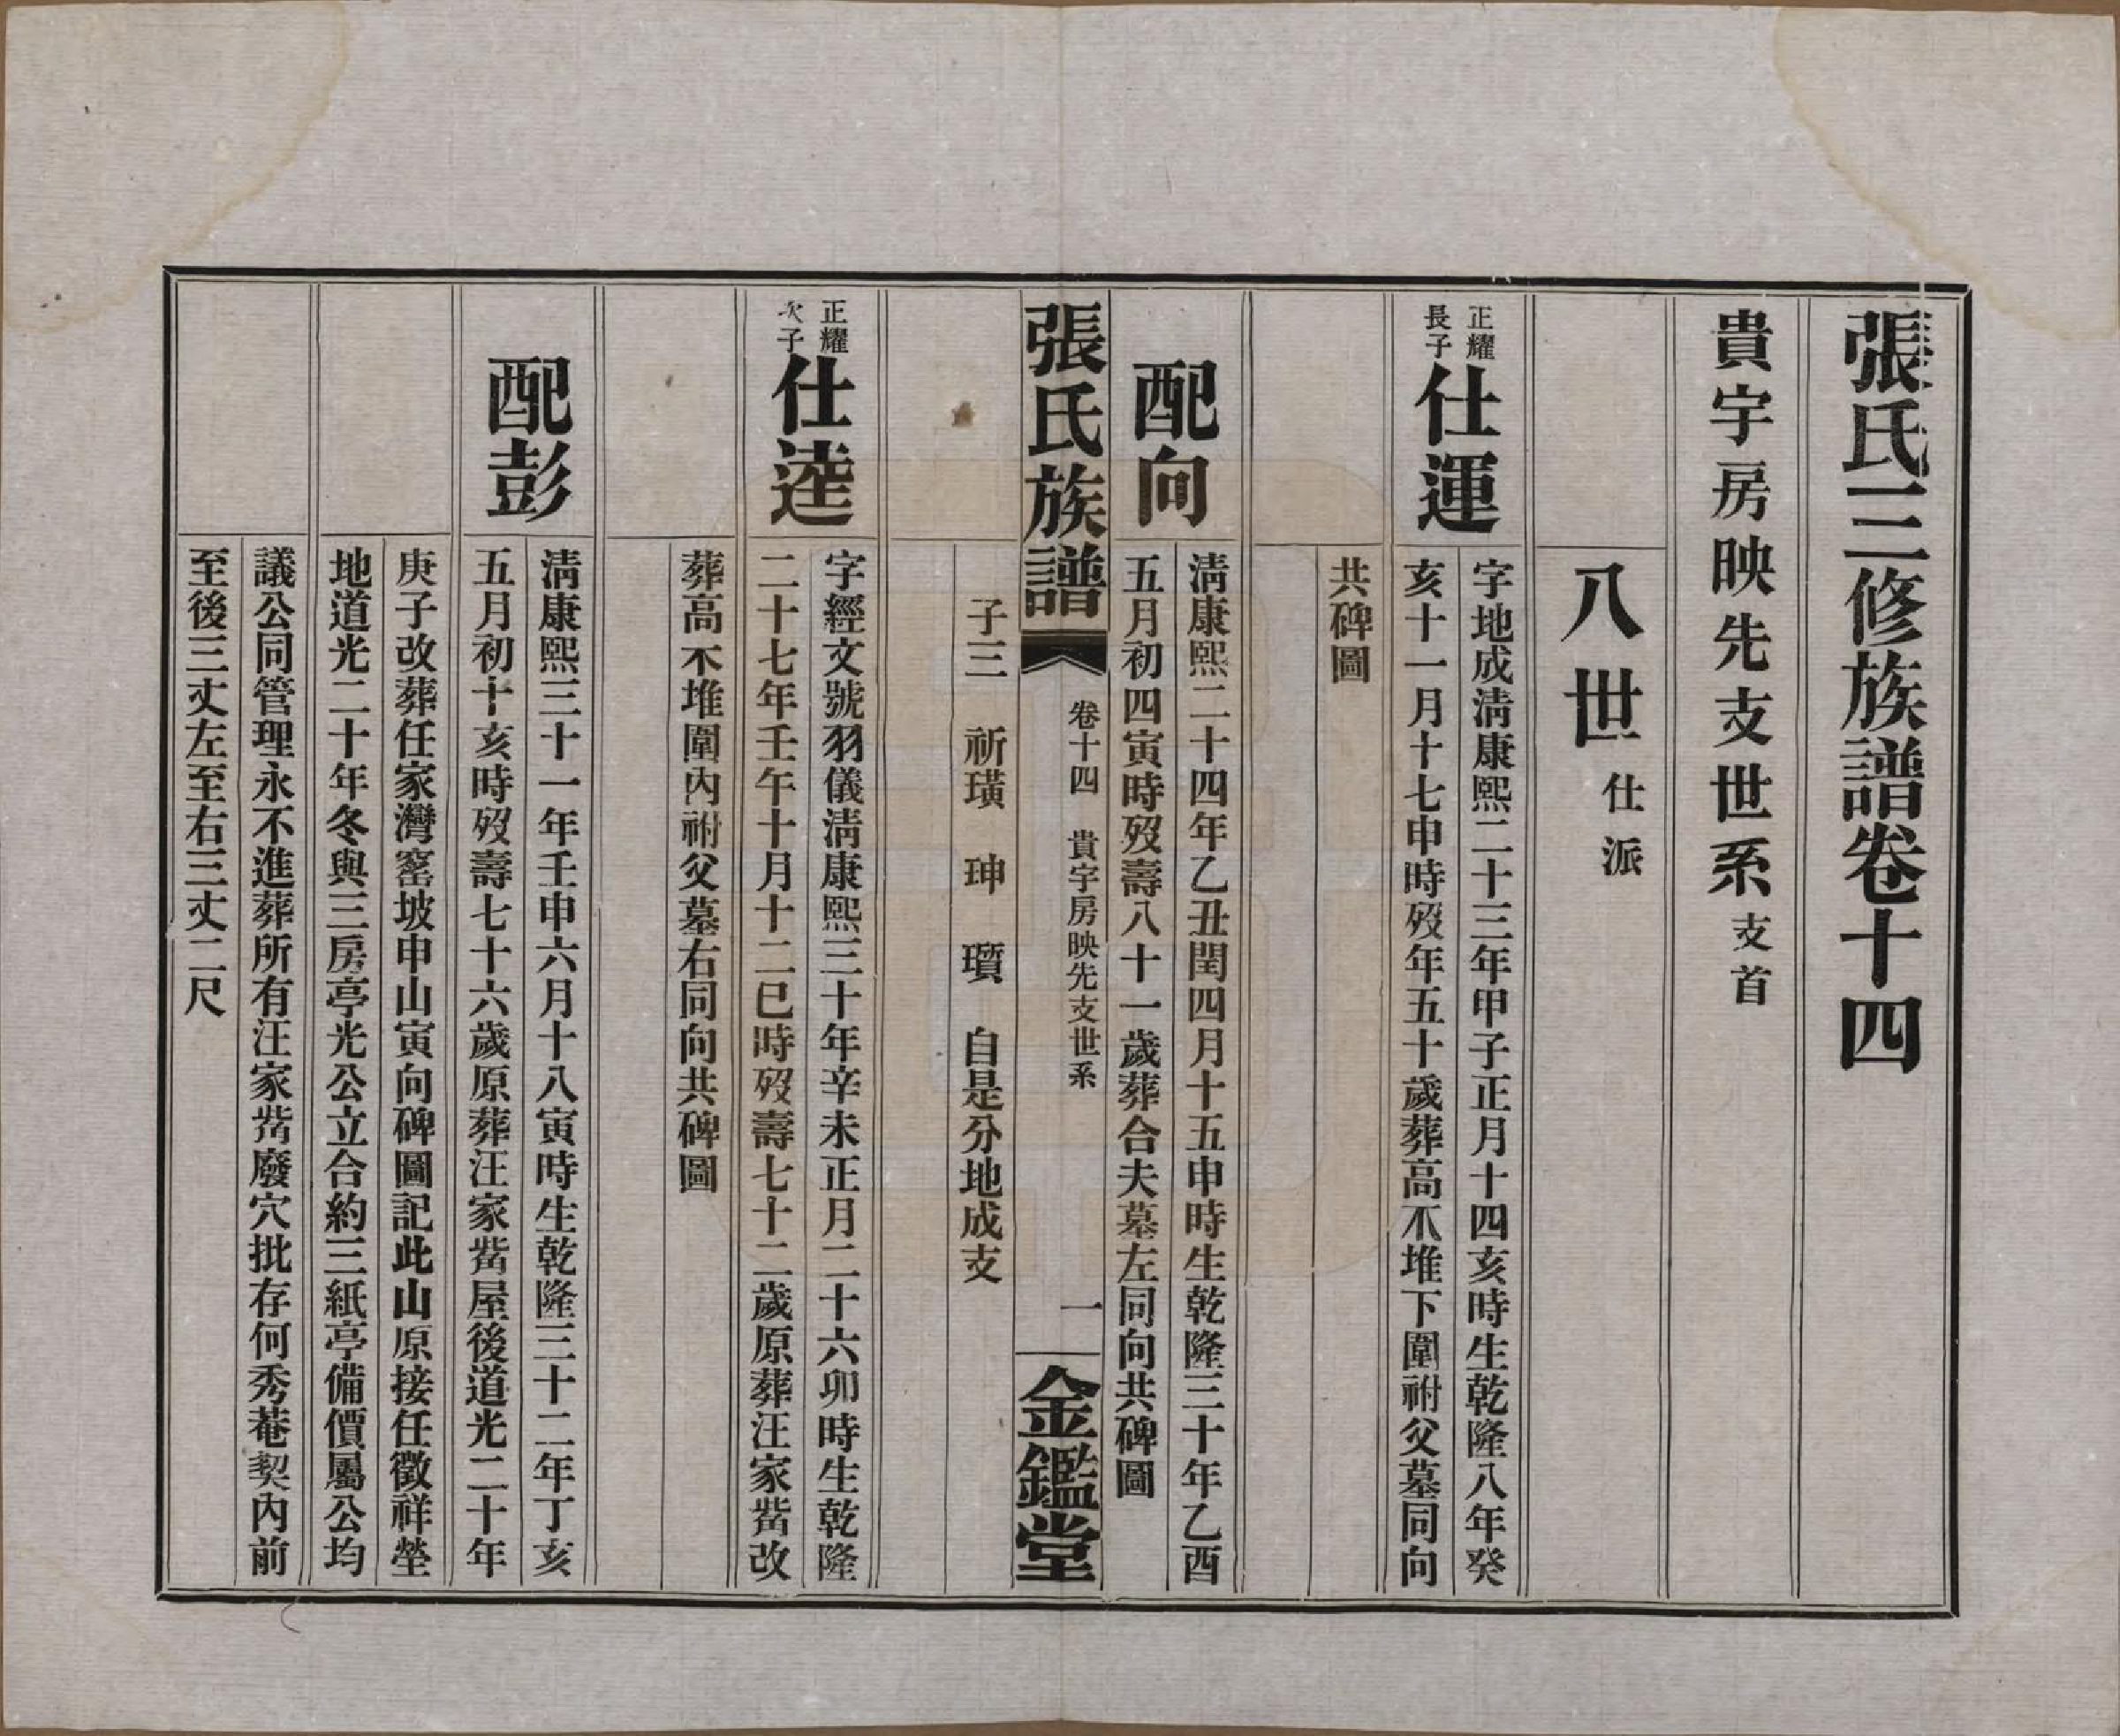 張氏三修族譜卷十四
貴宇房映先支世系支首
八世仕派
正耀
長子
仕運
字地成淸康熙二十三年甲子正月十四亥時生乾隆八年癸
亥十一月十七申時歿年五十歲葬高不堆下圍祔父墓同向
共碑圖
配向
淸康熙二十四年乙丑閏四月十五申時生乾隆三十年乙酉
五月初四寅時歿壽八十一歲葬合夫墓左同向共碑圖
張氏族譜
卷十四 貴宇房映先支世系
一
金鑑堂
子三 祈璜 珅 瓆 自是分地成支
正耀
次子
仕逵
字經文號羽儀淸康熙三十年辛未正月二十六卯時生乾隆
二十七年壬午十月十二巳時歿壽七十二歲原葬汪家嵴改
葬高不堆圍內祔父墓右同向共碑圖
配彭
淸康熙三十一年壬申六月十八寅時生乾隆三十二年丁亥
五月初十亥時歿壽七十六歲原葬汪家嵴屋後道光二十年
庚子改葬任家灣窰坡申山寅向碑圖記此山原接任徵祥塋
地道光二十年冬與三房亭光公立合約三紙亭備價屬公均
議公同管理永不進葬所有汪家嵴廢穴批存何秀菴契內前
至後三丈左至右三丈二尺